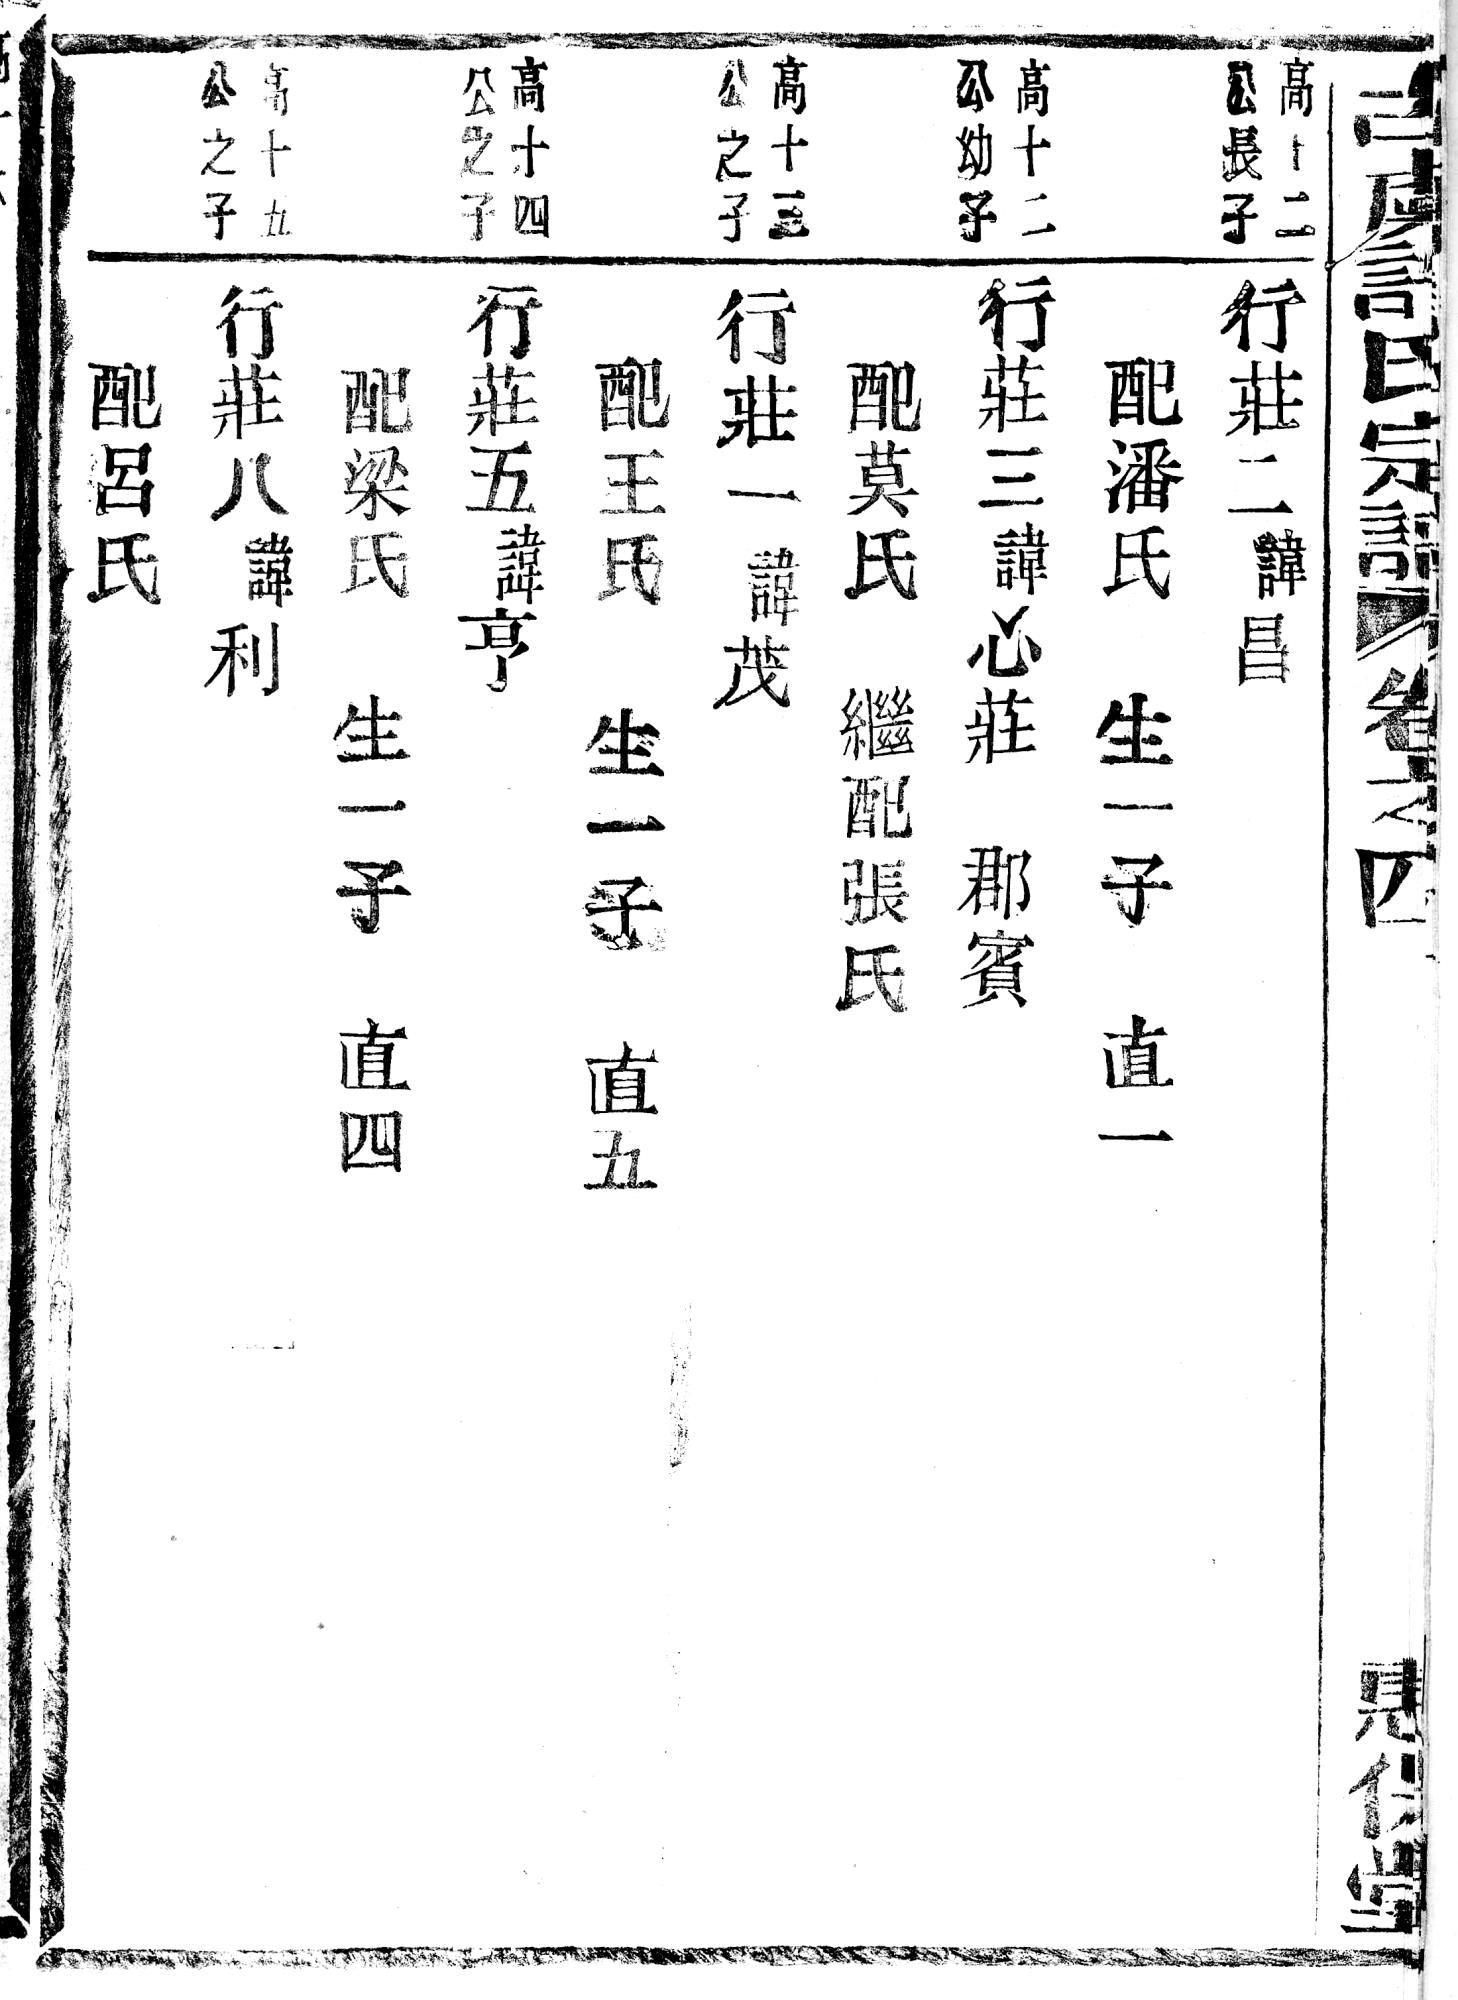 古虞許氏宗譜 卷之四
高十二
公長子
行莊二諱昌
配潘氏 生一子 直一
高十二
公幼子
行莊三諱心莊 郡賓
配莫氏 繼配張氏
高十三
公之子
行莊一諱茂
配王氏 生一子 直五
高十四
公之子
行莊五諱亨
配梁氏 生一子 直四
高十五
公之子
行莊八諱利
配呂氏